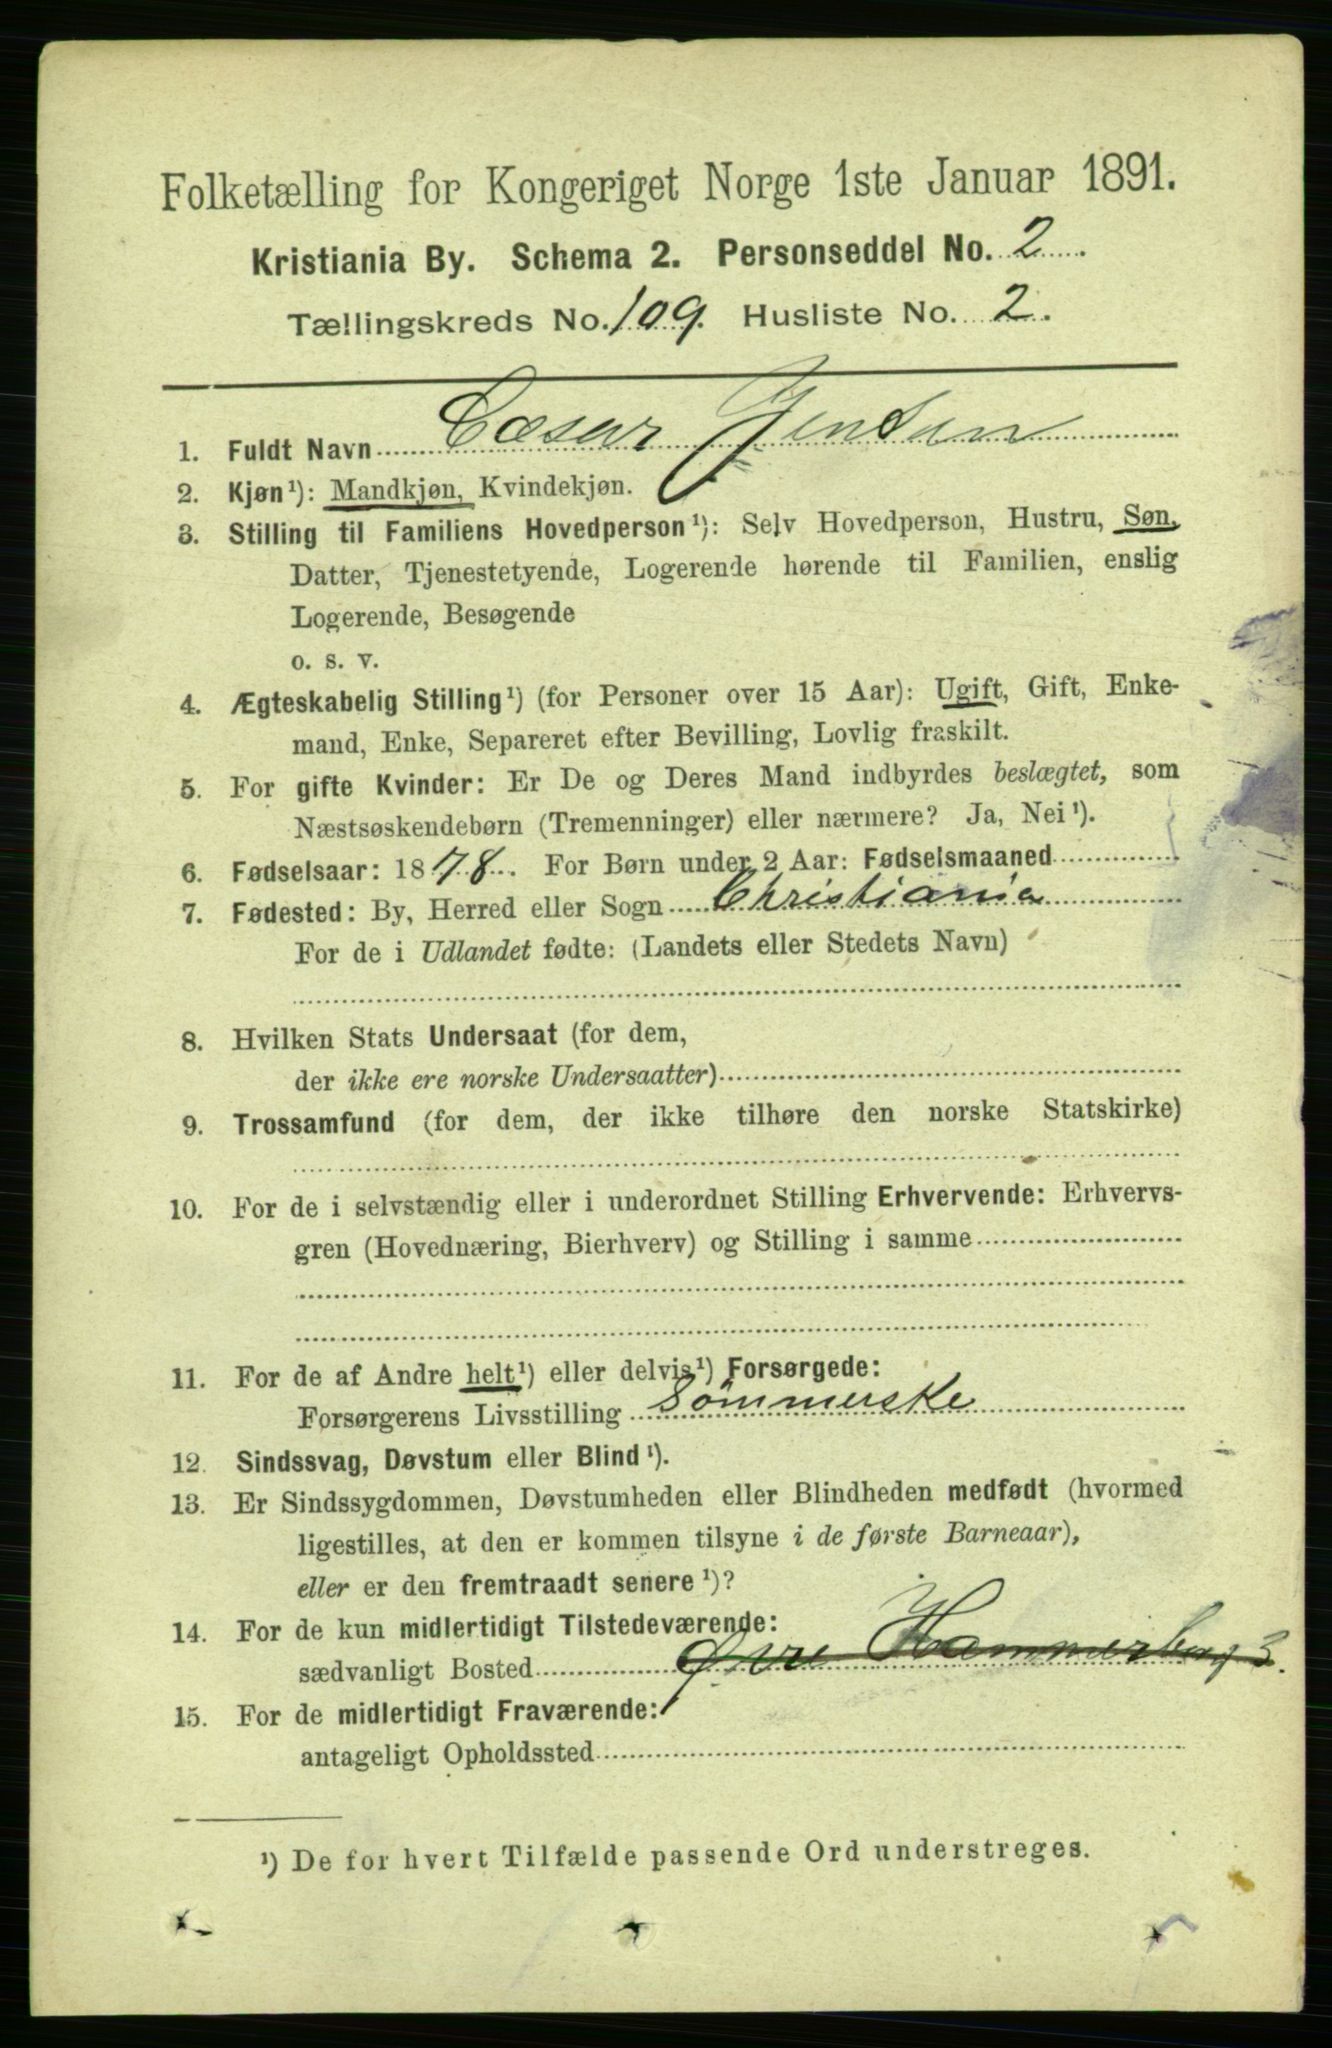 Folketælling for Kongeriget Norge 1ste Januar 1891.
Kristiania By. Schema 2. Personseddel No. 2.
Tællingskreds No. 109. Husliste No. 2.
1. Fuldt Navn Cæsar Jensen
2. Kjøn¹): Mandkjøn, Kvindekjøn.
3. Stilling til Familiens Hovedperson¹): Selv Hovedperson, Hustru, Søn,
Datter, Tjenestetyende, Logerende hørende til Familien, enslig
Logerende, Besøgende
o. s. v.
4. Ægteskabelig Stilling¹) (for Personer over 15 Aar): Ugift, Gift, Enke-
mand, Enke, Separeret efter Bevilling, Lovlig fraskilt.
5. For gifte Kvinder: Er De og Deres Mand indbyrdes beslægtet, som
Næstsøskendebørn (Tremenninger) eller nærmere? Ja, Nei¹).
6. Fødselsaar: 1878. For Børn under 2 Aar: Fødselsmaaned
7. Fødested: By, Herred eller Sogn Christiania
For de i Udlandet fødte: (Landets eller Stedets Navn)
8. Hvilken Stats Undersaat (for dem,
der ikke ere norske Undersaatter)
9. Trossamfund (for dem, der ikke tilhøre den norske Statskirke)
10. For de i selvstændig eller i underordnet Stilling Erhvervende: Erhvervs-
gren (Hovednæring, Bierhverv) og Stilling i samme
11. For de af Andre helt¹) eller delvis¹) Forsørgede:
Forsørgerens Livsstilling Sømmerske
12. Sindssvag, Døvstum eller Blind¹).
13. Er Sindssygdommen, Døvstumheden eller Blindheden medfødt (hvormed
ligestilles, at den er kommen tilsyne i de første Barneaar),
eller er den fremtraadt senere¹)?
14. For de kun midlertidigt Tilstedeværende:
sædvanligt Bosted Øvre Hammersborg 3.
15. For de midlertidigt Fraværende:
antageligt Opholdssted
¹) De for hvert Tilfælde passende Ord understreges.